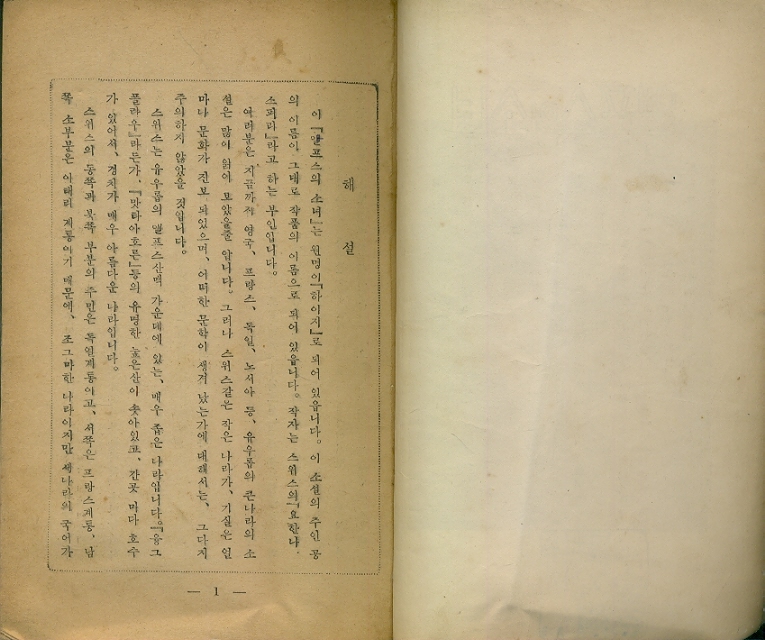 해 설
이『앨프스의 소녀』는 원명이『하이지』로 되어 있읍니다. 이 소설의 주인 공
의 이름이 그대로 작품의 이름으로 되어 있읍니다. 작자는 스위스의『요한나.
스피리』라고 하는 부인입니다.
여러분은 지금까지 영국, 프랑스, 독일, 노서아 등, 유우롭의 큰나라의 소
설은 많이 읽어 보았을줄 압니다. 그러나 스위스같은 작은 나라가, 기실은 얼
마나 문화가 진보 되있으며, 어떠한 문학이 생겨 났는가에 대해서는, 그다지
주의하지 않았을 것입니다.
스위스는 유우롭의 앨프스산맥 가운데에 있는, 매우 좁은 나라입니다.『융그
플라우』라든가,『맛타아호른』등의 유명한 높은산이 솟아있고, 간곳 마다 호수
가 있어서, 경치가 매우 아름다운 나라입니다.
스위스의 동쪽과 북쪽 부분의 주민은 독일계통이고, 서쪽은 프랑스계통, 남
쪽 소부분은 이태리 계통이기 때문에, 조그마한 나라이지만 세나라의 국어가
— 1 —